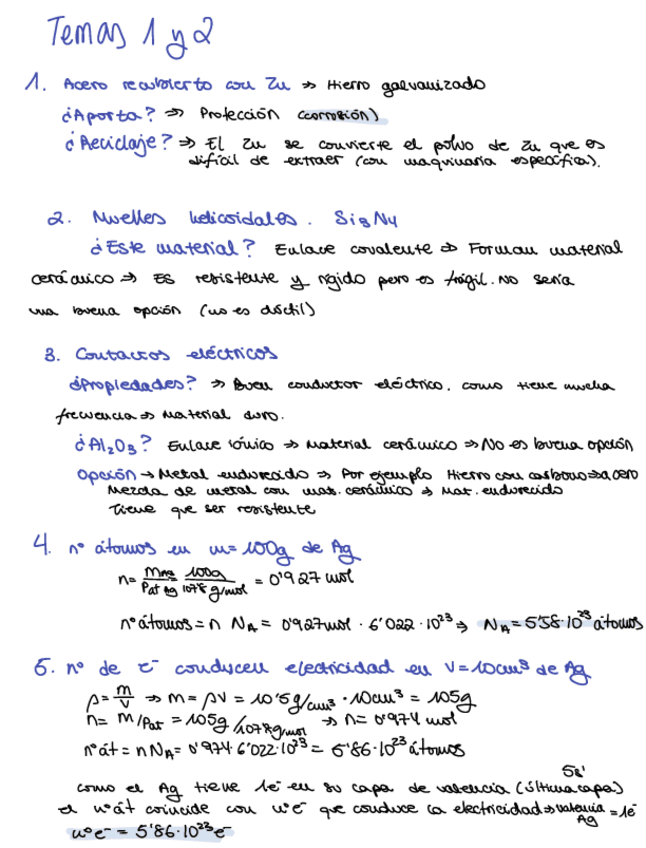 Temas 1 y 2
1. Acero recubierto con Zn => Hierro galvanizado
¿Aporta? => Protección (corrosión)
¿Reciclaje? => El Zn se convierte el polvo de Zn que es
difícil de extraer (con maquinaria específica).
2. Muelles helicoidales. Si3N4
¿Este material? Enlace covalente => Forman material
cerámico => Es resistente y rígido pero es frágil. No sería
una buena opción (no es dúctil)
3. Contactos eléctricos
¿Propiedades? => Buen conductor eléctrico, como tiene mucha
frecuencia => Material duro.
¿Al2O3? Enlace iónico => Material cerámico => No es buena opción
Opción → Metal endurecido => Por ejemplo Hierro con carbono => acero
Mezcla de metal con mat. cerámico → Mat. endurecido
Tiene que ser resistente
4. nº átomos en m= 100g de Ag
n= mAg / Pat Ag 100g / 107'8 g/mol = 0'927 mol
nº átomos = n NA = 0'927 mol · 6'022 · 10^23 => NA = 5'58 · 10^23 átomos
5. nº de e- conducen electricidad en V= 10cm³ de Ag
ρ= m/V => m = ρV = 10'5 g/cm³ · 10cm³ = 105g
n= m/Pat = 105g/107'8 g/mol => n= 0'974 mol
nº át = n NA = 0'974 · 6'022 · 10^23 = 5'86 · 10^23 átomos
5s¹
como el Ag tiene 1e- en su capa de valencia (última capa)
el nº át coincide con nº e- que conduce la electricidad => valencia Ag = 1e-
nº e- = 5'86 · 10^23 e-